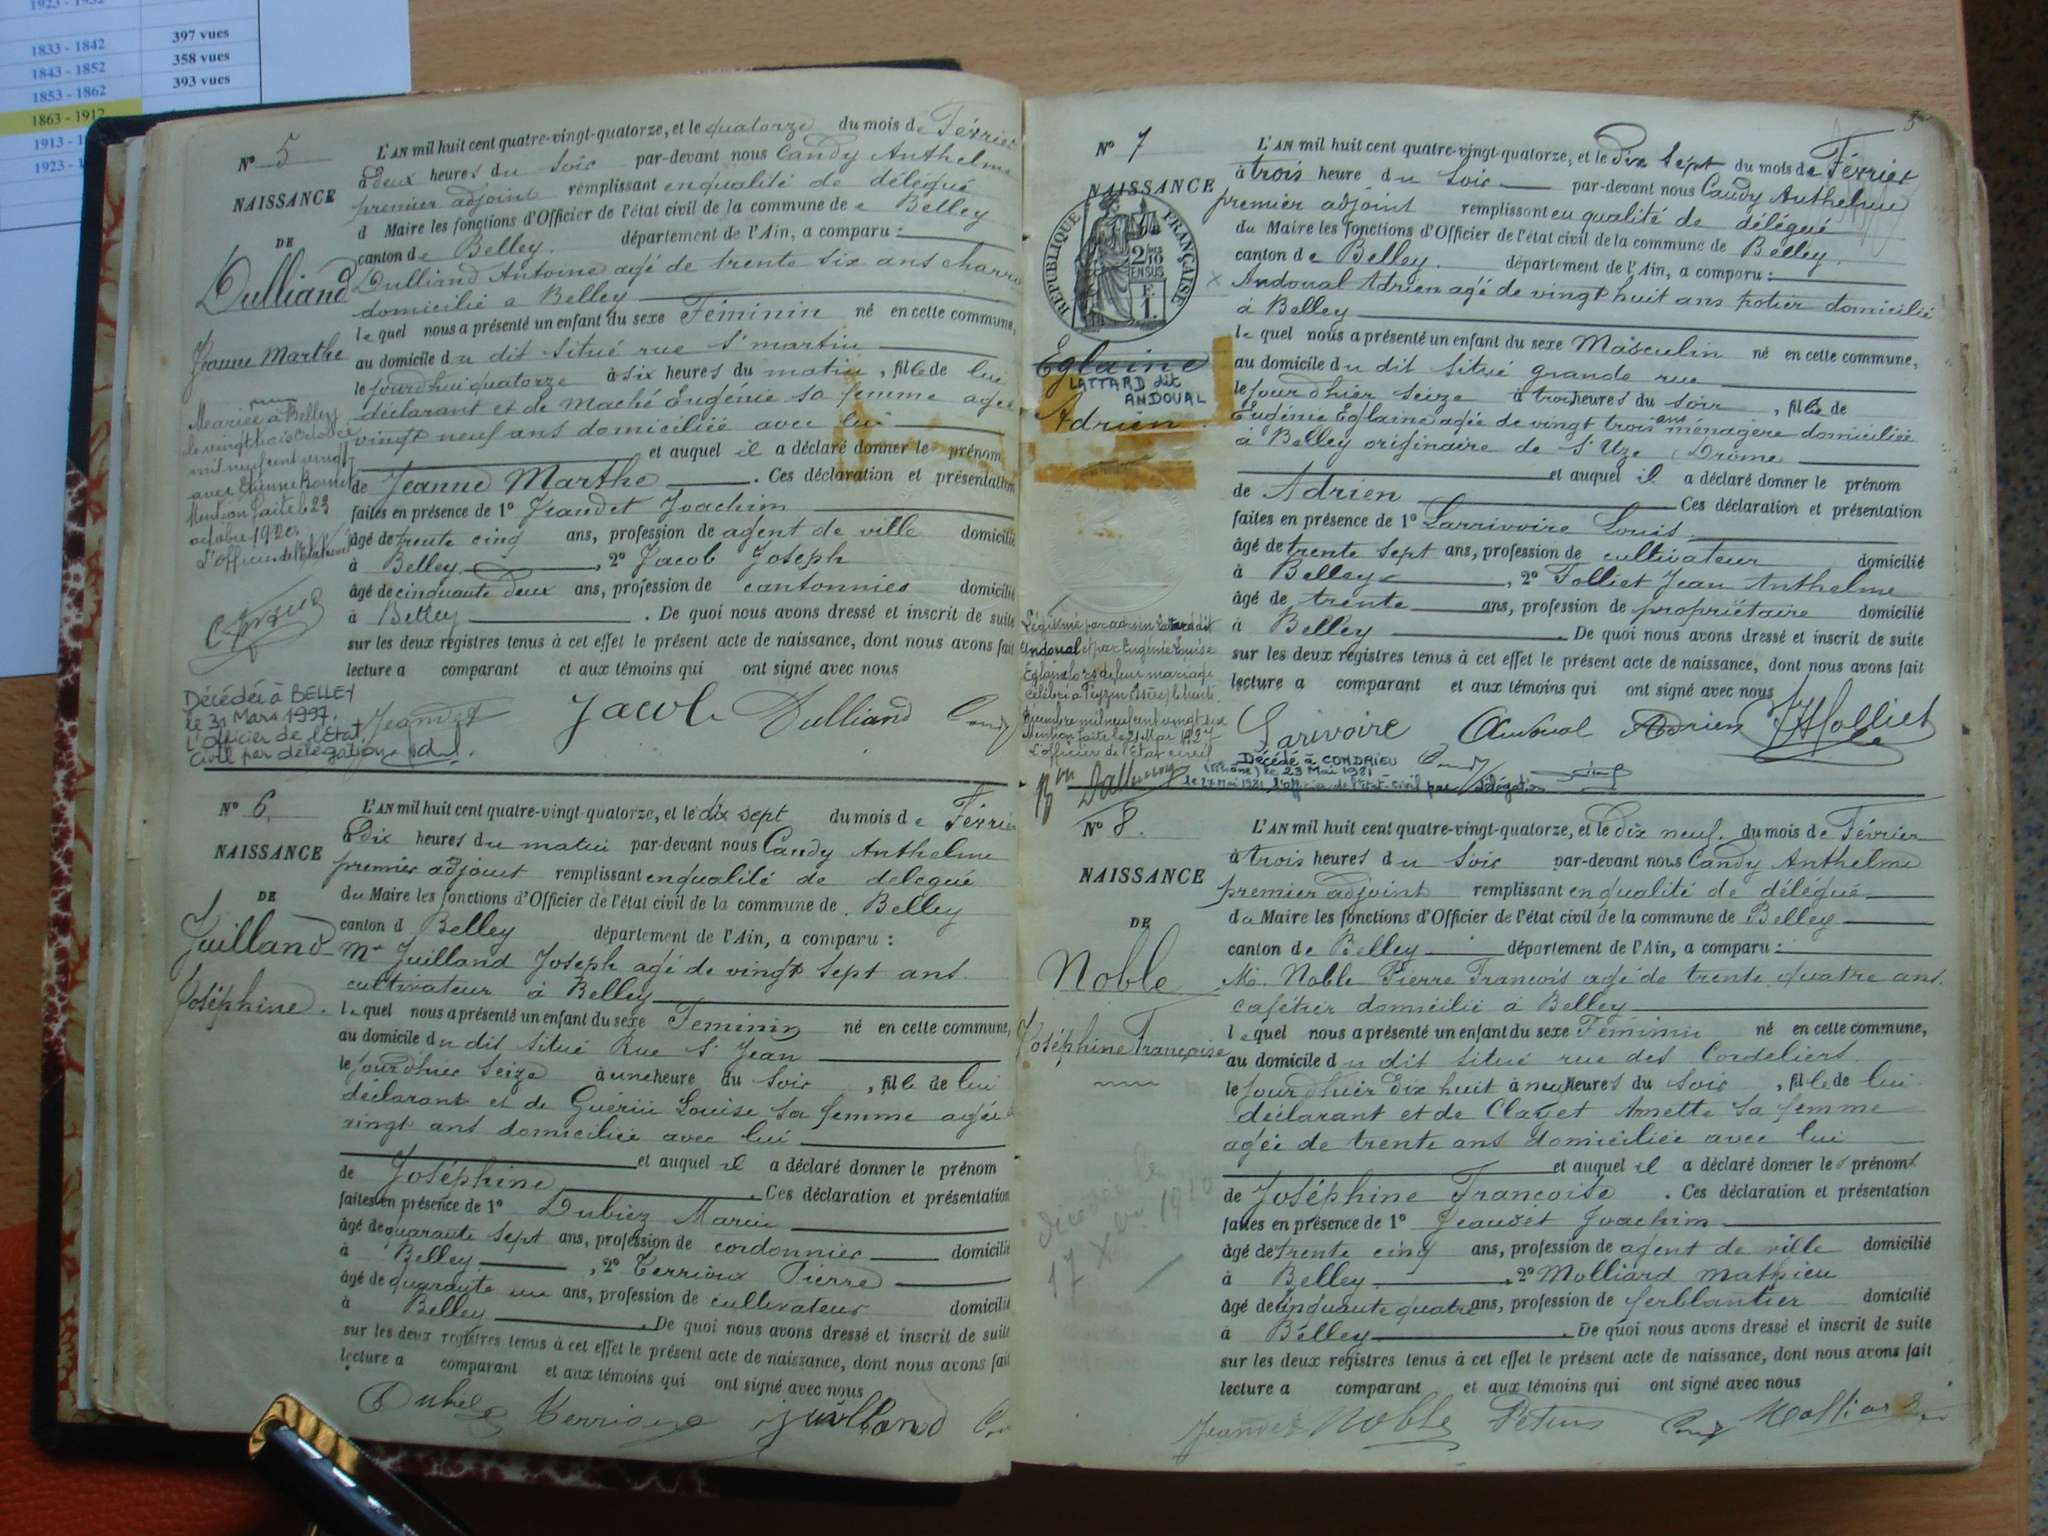 1833 - 1842 397 vues
1843 - 1852 358 vues
1853 - 1862 393 vues
1863 - 1912
1913 - 1
1923 - 1
N° 5
NAISSANCE
DE
Dulliand
Jeanne Marthe
Mariée à Belley
le vingt trois octobre
mil neuf cent vingt
avec Etienne
Mention faite le 23
octobre 1920.
L'officier de l'état civil
L'AN mil huit cent quatre-vingt-quatorze, et le quatorze du mois de Février
à deux heures du soir par-devant nous Candy Anthelme
premier adjoint remplissant en qualité de délégué
d Maire les fonctions d'Officier de l'état civil de la commune de Belley
canton de Belley. département de l'Ain, a comparu :
Dulliand Antoine agé de trente six ans
domicilié à Belley
lequel nous a présenté un enfant du sexe Féminin né en cette commune,
au domicile du dit situé rue St martin
le jourdhui quatorze à six heures du matin, fille de lui
déclarant et de Maché Eugénie sa femme agée
vingt neuf ans domiciliée avec lui
et auquel il a déclaré donner le prénom
de Jeanne Marthe. Ces déclaration et présentation
faites en présence de 1° Jeandet Joachim
âgé de trente cinq ans, profession de agent de ville domicilié
à Belley, 2° Jacob Joseph
âgé de cinquante deux ans, profession de cantonnier domicilié
à Belley. De quoi nous avons dressé et inscrit de suite
sur les deux registres tenus à cet effet le présent acte de naissance, dont nous avons fait
lecture a comparant et aux témoins qui ont signé avec nous
Décédée à BELLEY
le 31 Mars 1997.
L'officier de l'Etat
Civil par délégation
Jeandet Jacob Dulliand Candy
N° 6.
NAISSANCE
DE
Juilland
Joséphine.
L'AN mil huit cent quatre-vingt-quatorze, et le dix sept du mois de Février
à Dix heures du matin par-devant nous Candy Anthelme
premier adjoint remplissant en qualité de delegué
du Maire les fonctions d'Officier de l'état civil de la commune de Belley
canton d Belley département de l'Ain, a comparu :
Mr Juilland Joseph agé de vingt sept ans
cultivateur à Belley
lequel nous a présenté un enfant du sexe Feminin né en cette commune,
au domicile du dit situé Rue St Jean
le jourdhier seize à une heure du soir, fille de lui
déclarant et de Guérin Louise sa femme agée de
vingt ans domiciliée avec lui
et auquel il a déclaré donner le prénom
de Joséphine. Ces déclaration et présentation
faites en présence de 1° Dubiez Marin
âgé de quarante sept ans, profession de cordonnier domicilié
à Belley, 2° Terrioux Pierre
âgé de quarante un ans, profession de cultivateur domicilié
à Belley. De quoi nous avons dressé et inscrit de suite
sur les deux registres tenus à cet effet le présent acte de naissance, dont nous avons fait
lecture a comparant et aux témoins qui ont signé avec nous
Juilland
3
N° 7
NAISSANCE
RÉPUBLIQUE FRANÇAISE
2/10
EN SUS
1 F.
Eglaine
LATTARD dit
ANDOUAL
Adrien
L'AN mil huit cent quatre-vingt-quatorze, et le dix sept du mois de Février
à trois heure du soir par-devant nous Candy Anthelme
premier adjoint remplissant en qualité de délégué
du Maire les fonctions d'Officier de l'état civil de la commune de Belley.
canton de Belley. département de l'Ain, a comparu :
Andoual Adrien agé de vingt huit ans potier domicilié
à Belley
lequel nous a présenté un enfant du sexe Masculin né en cette commune,
au domicile du dit situé grande rue
le jourdhier seize à trois heures du soir, fils de
Eugénie Eglaine agée de vingt trois ans ménagère domiciliée
à Belley originaire de St Uze (Drôme
et auquel il a déclaré donner le prénom
de Adrien Ces déclaration et présentation
faites en présence de 1° Larrivoire Louis
âgé de trente sept ans, profession de cultivateur domicilié
à Belley, 2° Folliet Jean Anthelme
âgé de trente ans, profession de propriétaire domicilié
à Belley. De quoi nous avons dressé et inscrit de suite
sur les deux registres tenus à cet effet le présent acte de naissance, dont nous avons fait
lecture a comparant et aux témoins qui ont signé avec nous
Légitimé par adrien Lattard dit
Andoual et par Eugénie Louise
Eglaine lors de leur mariage
célébré à Feyzin (Isère) le huit
Décembre mil neuf cent vingt six
Mention faite le 21 Mai 1927
L'officier de l'Etat civil
Larivoire Andoual Adrien JAFolliet
Candy
Décédé à CONDRIEU
(Rhône) le 23 Mai 1981
le 27 Mai 1981 l'officier de l'état-civil par délégation
N° 8.
NAISSANCE
DE
Noble
Joséphine Françoise
Décédée le
17 Xbre 1910
L'AN mil huit cent quatre-vingt-quatorze, et le dix neuf. du mois de Février
à trois heures du soir par-devant nous Candy Anthelme
premier adjoint remplissant en qualité de délégué
du Maire les fonctions d'Officier de l'état civil de la commune de Belley
canton de Belley département de l'Ain, a comparu :
Mr. Noble Pierre François agé de trente quatre ans.
cafétier domicilié à Belley
lequel nous a présenté un enfant du sexe Féminin né en cette commune,
au domicile du dit situé rue des Cordeliers
le jour dhier dix huit à neuf heures du soir, fille de lui
déclarant et de Clayet Annette sa femme
agée de trente ans domiciliée avec lui
et auquel il a déclaré donner les prénoms
de Joséphine Françoise. Ces déclaration et présentation
faites en présence de 1° Jeandet Joachim
âgé de trente cinq ans, profession de agent de ville domicilié
à Belley, 2° Molliard Mathieu
âgé de cinquante quatre ans, profession de ferblantier domicilié
à Belley. De quoi nous avons dressé et inscrit de suite
sur les deux registres tenus à cet effet le présent acte de naissance, dont nous avons fait
lecture a comparant et aux témoins qui ont signé avec nous
Jeandet Noble Candy Molliard